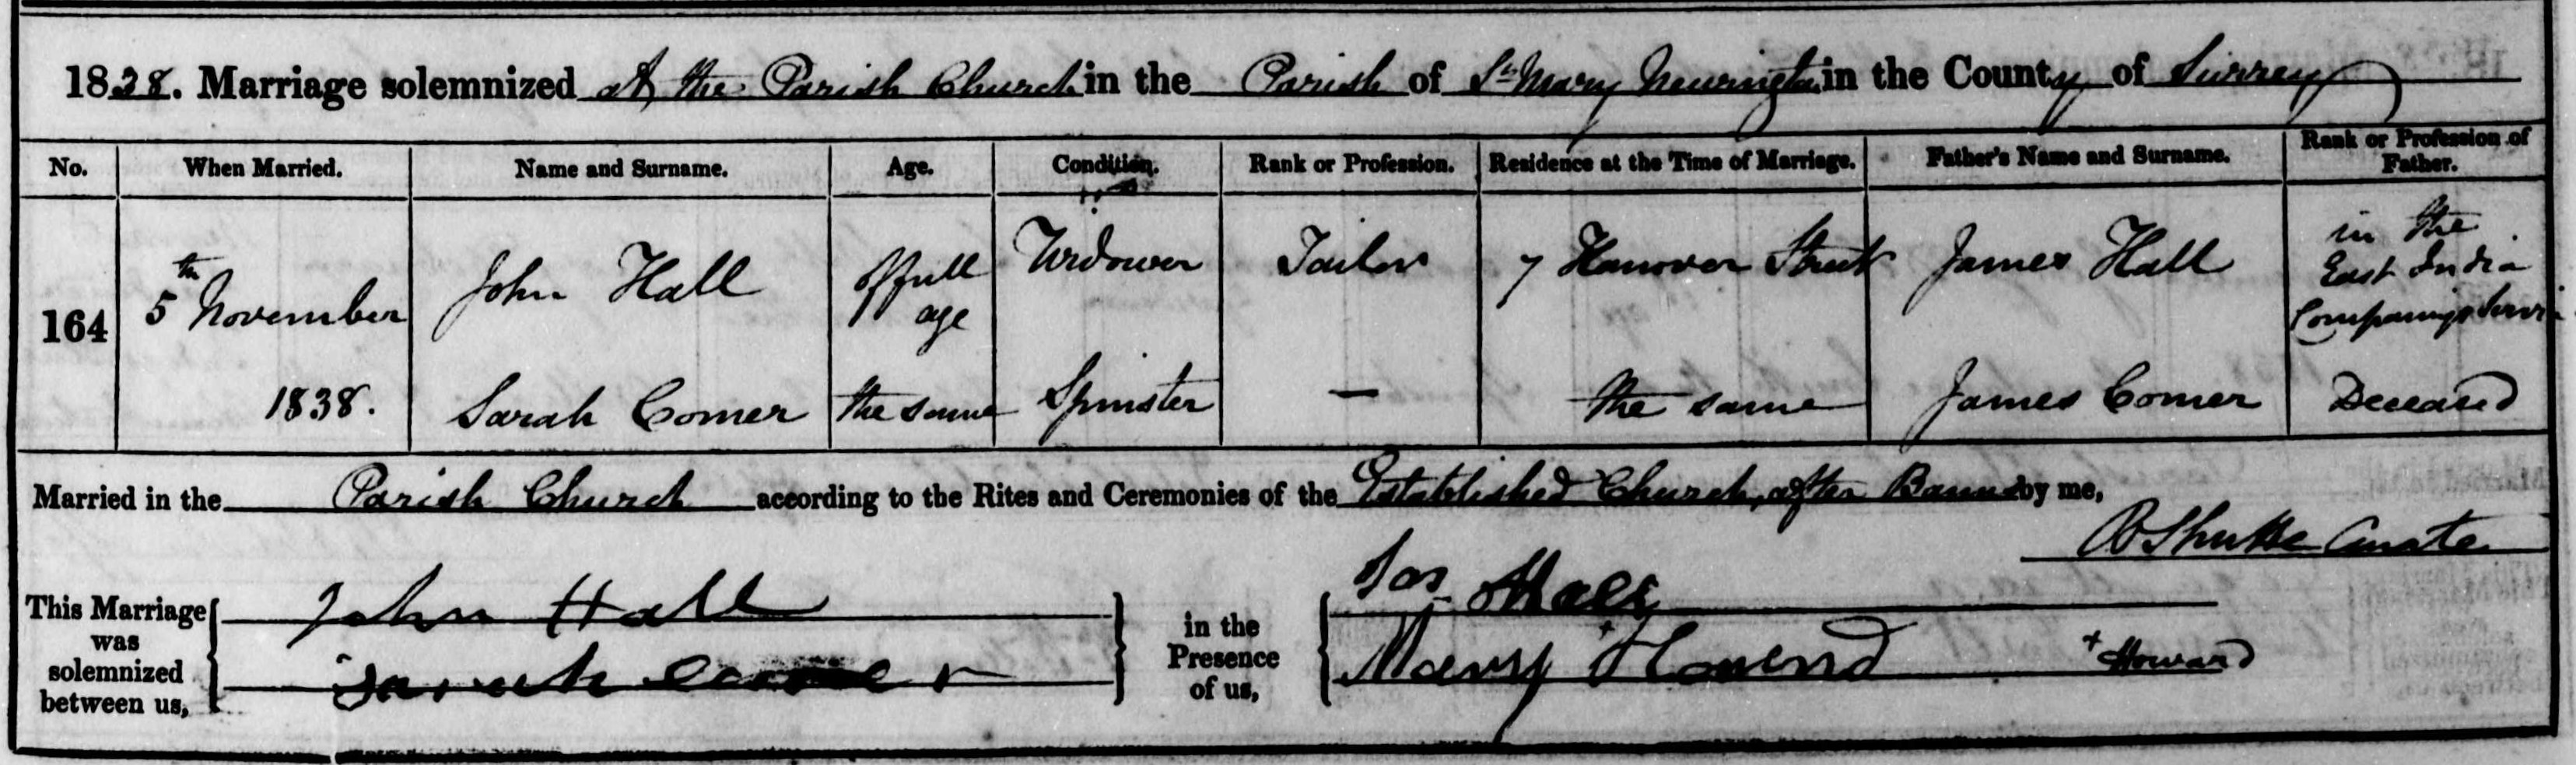 1838. Marriage solemnized at the Parish Church in the Parish of St Mary Newington in the County of Surrey
No. When Married. Name and Surname. Age. Condition. Rank or Profession. Residence at the Time of Marriage. Father's Name and Surname. Rank or Profession of Father.
164 5th November 1838. John Hall of full age Widower Tailor 7 Hanover Street James Hall in the East India Companys Servi
Sarah Comer the same Spinster — the same James Comer Deceased
Married in the Parish Church according to the Rites and Ceremonies of the Established Church, after Banns by me,
Curate
This Marriage was solemnized between us, John Hall
Sarah Comer
in the Presence of us, Jas Hall
Mary Howerd + Howard